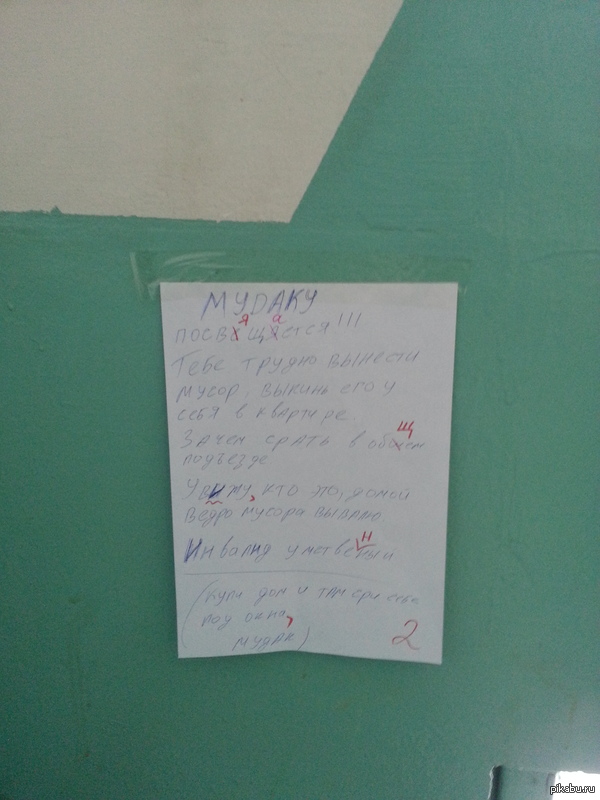 МУДАКУ
я а
посвещяется!!!
Тебе трудно вынести
мусор, выкинь его у
себя в квартире
щ
Зачем срать в общем
подъезде
Увижу, кто это, домой
ведро мусора вывалю
н
Инвалид умственый
(купи дом и там сри себе
под окна,
мудак)
2
pikabu.ru